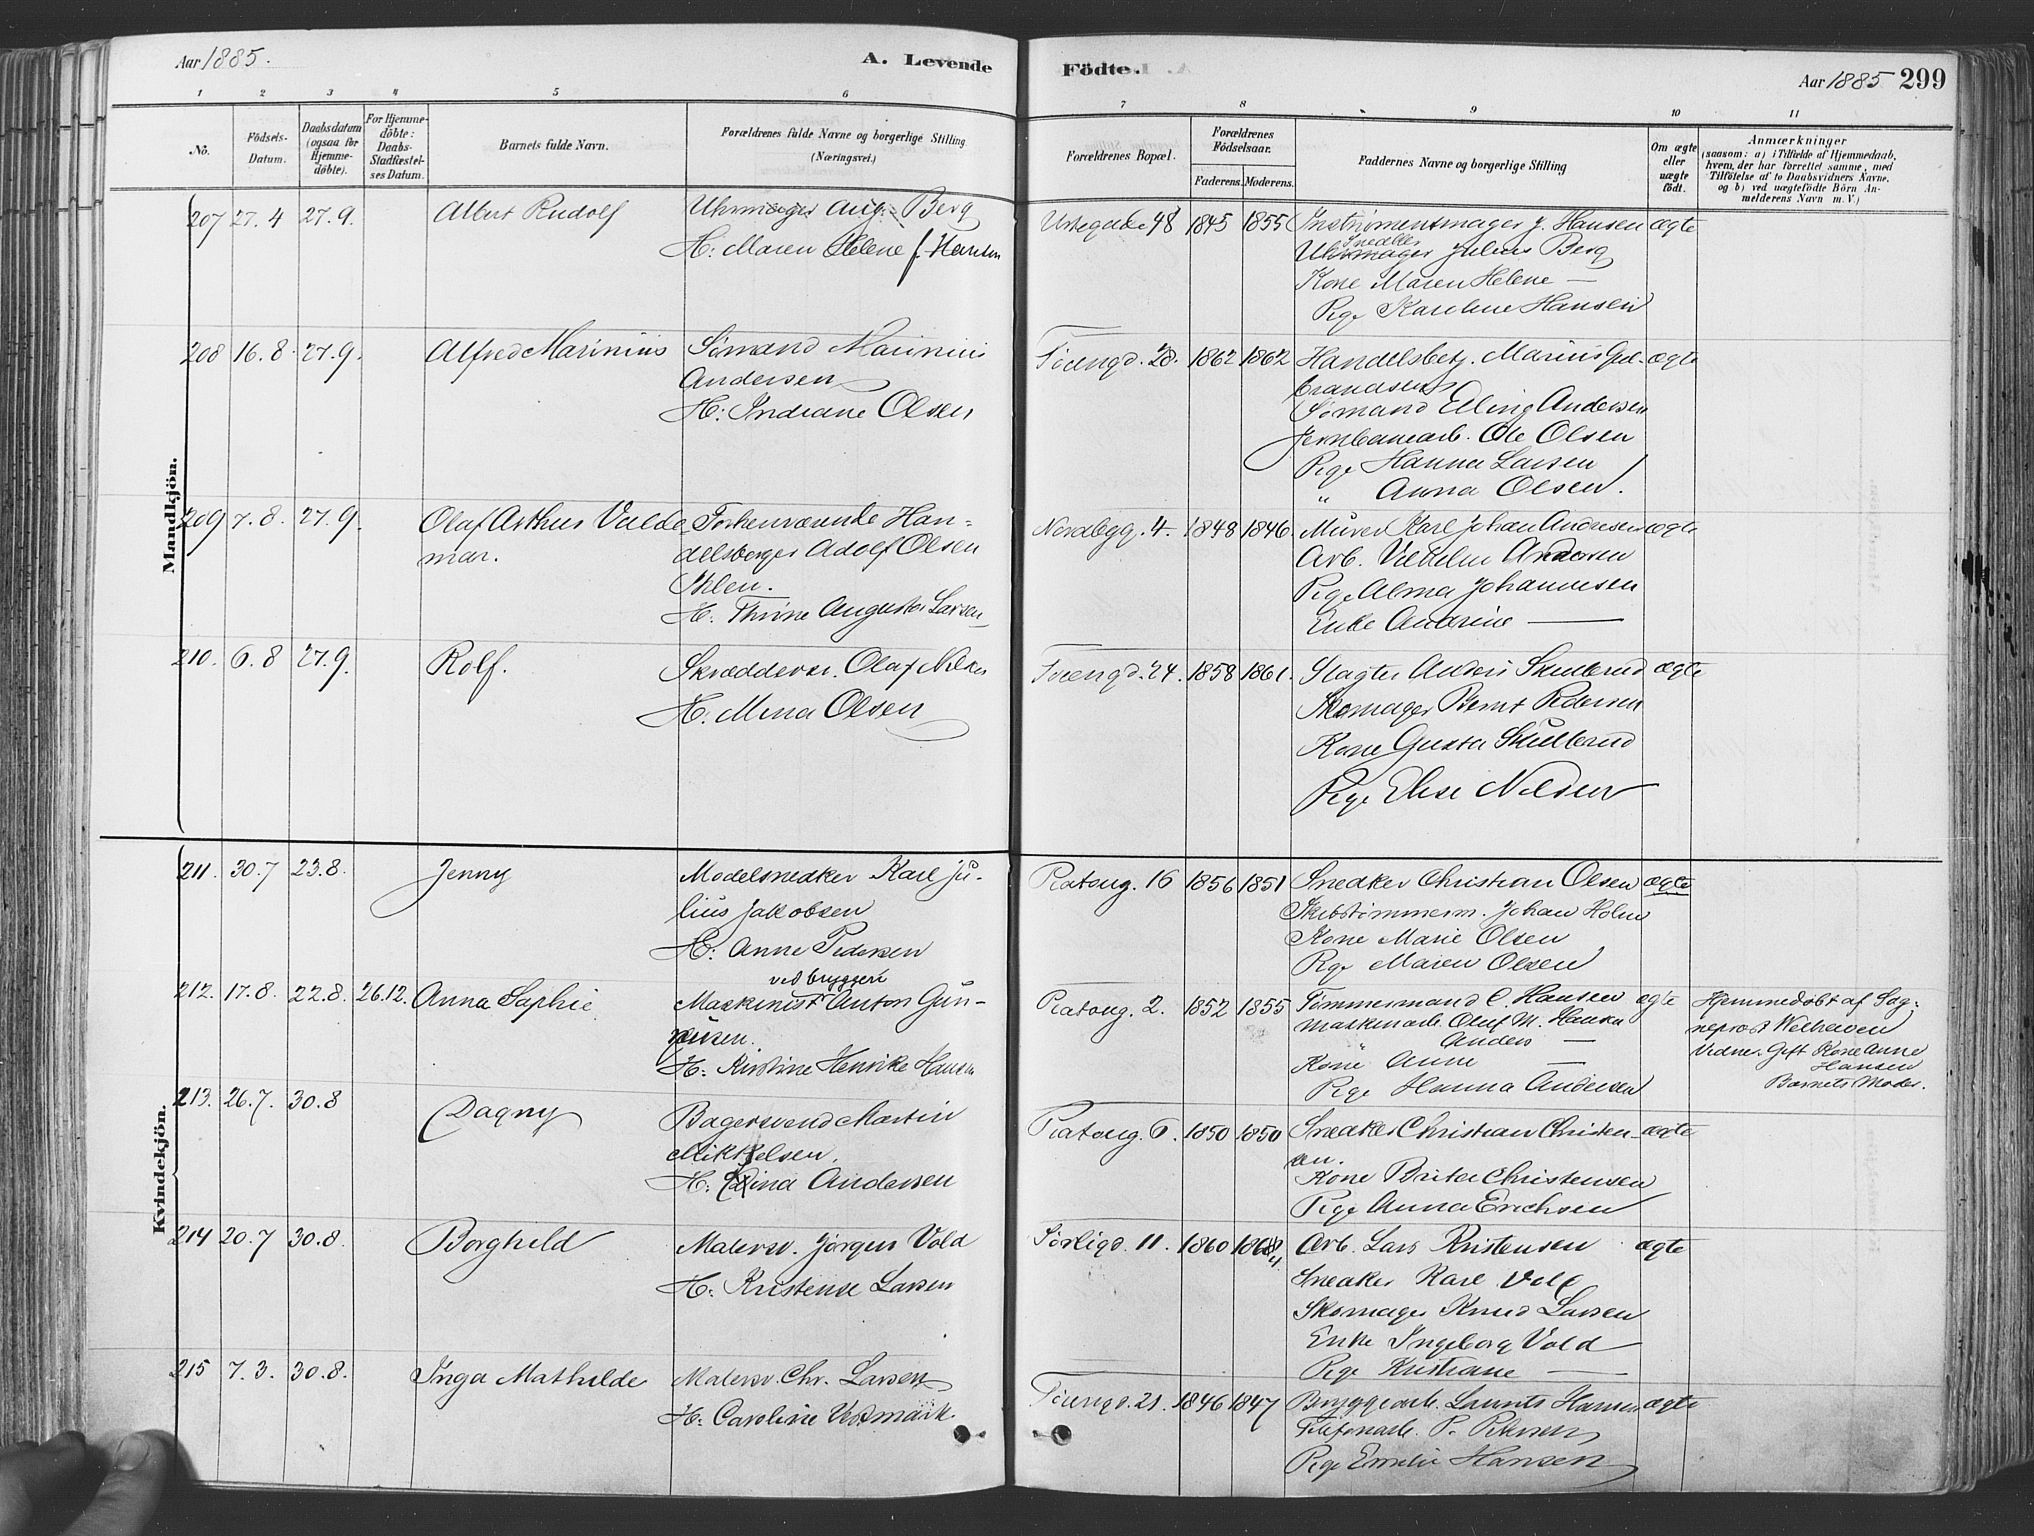 Aar 1885.
A. Levende
Födte.
Aar 1885 299
1 2 3 4 5 6
7 8 9 10 11
No.
Födsels-
Datum.
Daabsdatum
(ogsaa for
Hjemme-
döbte).
For Hjemme-
döbte:
Daabs-
Stadfæstel-
ses Datum.
Barnets fulde Navn.
Forældrenes fulde Navne og borgerlige Stilling
(Næringsvei.)
Forældrenes Bopæl.
Forældrenes
Födselsaar.
Faderens. Moderens.
Faddernes Navne og borgerlige Stilling
Om ægte
eller
uægte
födt.
Anmærkninger
(saasom: a) i Tilfælde af Hjemmedaab,
hvem, der har forrettet samme, med
Tilföielse af to Daabsvidners Navne,
og b) ved uægtefödte Börn An-
melderens Navn m. V.)
Mandkjön.
207 27.4 27.9. Albert Rudolf
Uhrmager Aug. Berg
H: Maren Helene f. Hansen
Urtegade 48 1845 1855
Instrumentmager J. Hansen ægte
Snedker
Uhrmager Julius Berg
Kone Maren Helene —
Pige Karoline Hansen
208 16.8. 27.9. Alfred Marinius
Sømand Marinius
Andersen
H: Indiane Olsen
Tøiengd. 28. 1862 1862
Handelsbetj. Marius Gul- ægte
brandsen
Sømand Elling Andersen
Jernbanearb. Ole Olsen
Pige Hanna Larsen
" Anna Olsen.
209 7.8. 27.9. Olaf Arthur Valde
mar.
Forhenværende Han-
delsborger Adolf Olsen
Ihlen.
H. Thrine Augusta Larsen
Nordbygg. 4. 1848 1846.
Murer Karl Johan Andresen ægte
Arb. Vilhelm Andersen
Pige Alma Johannesen
Enke Andrine —
210. 6.8 27.9. Rolf.
Skræddersv. Olaf Nilsen
H. Mina Olsen
Tøiengd. 24. 1858 1861.
Slagter Anders Skullerud ægte
Skomager Bernt Pedersen
Kone Gusta Skullerud
Pige Else Nilsen
Kvindekjön.
211. 30.7 23.8. Jenny
Modelsnedker Karl Ju-
lius Jakobsen
H: Anne Pedersen
Platoug. 16 1856 1851
Snedker Christian Olsen ægte
Skibstømmerm. Johan Holm
Kone Marie Olsen
Pige Maren Olsen
212. 17.8. 22.8. 26.12. Anna Sophie.
ved bryggeri
Maskinist Anton Gun-
H: Kirstine Henrike Hansen
Platoug. 2. 1852 1855
Tømmermand C. Hansen ægte
Maskinarb. Oluf M. Hansen
Anders —
Kone Anne —
Pige Hanna Andersen
Hjemmedøbt af Sog-
neprest Welhaven
Vidner: Gift Kone Anne
Hansen
Barnets Moder.
213. 26.7. 30.8 Dagny
Bagersvend Martin
Mikkelsen.
H: Andersen
Platoug. 6. 1850 1850
Snedker Christian Christen- ægte
sen.
Kone Brita Christensen
Pige Anna Erichsen
214 20.7 30.8. Borghild
Malersv. Jørgen Vold
H: Kristense Larsen
Sørligd. 11. 1860
Arb. Lars Kristensen ægte
Snedker Karl Vold
Skomager Knud Larsen
Enke Ingeborg Vold
Pige Kristiane —
215 7.3. 30.8. Inga Mathilde
Malersv. Chr. Larsen
H: Caroline Vedmark
Tøiengd. 21. 1846 1847
Bryggearb. Laurits Hansen ægte
Telefonarb. P. Petersen
Pige Emilie Hansen